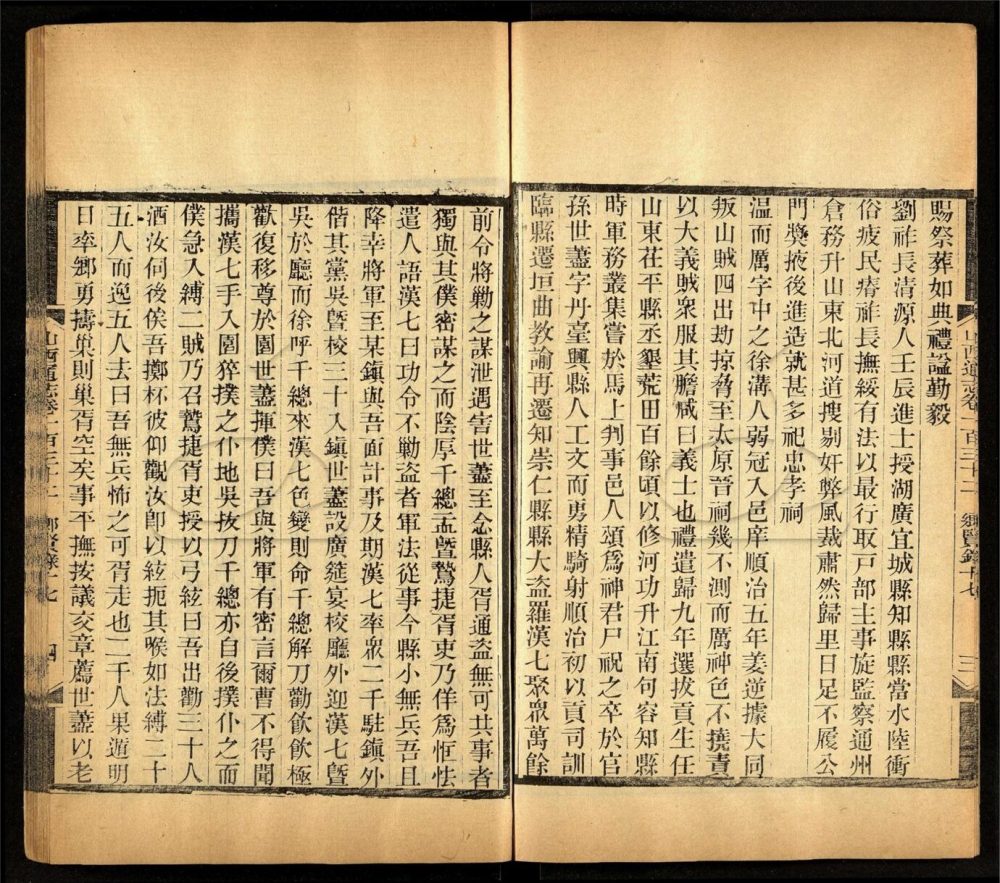 賜祭葬如典禮謚勤毅
劉祚長清源人壬辰進士授湖廣宜城縣知縣縣當水陸衝
俗疲民瘠祚長撫綏有法以最行取戸部主事旋監察通州
倉務升山東北河道搜剔奸弊風裁肅然歸里日足不履公
門奬掖後進造就甚多祀忠孝祠
温而厲字中之徐溝人弱冠入邑庠順治五年姜逆據大同
叛山賊四出劫掠脅至太原晉祠幾不測而厲神色不撓責
以大義賊衆服其膽咸曰義士也禮遣歸九年選拔貢生任
山東茌平縣丞墾荒田百餘頃以修河功升江南句容知縣
時軍務叢集嘗於馬上判事邑人頌爲神君尸祝之卒於官
孫世藎字丹臺興縣人工文而勇精騎射順治初以貢司訓
臨縣遷垣曲教諭再遷知崇仁縣縣大盗羅漢七聚衆萬餘
山西通志卷一百三十二 鄉賢錄十七
前令將勦之謀泄遇害世藎至念縣人胥通盗無可共事者
獨與其僕密謀之而陰厚千總孟曁驁捷胥吏乃佯爲恇怯
遣人語漢七曰功令不勦盗者軍法從事今縣小無兵吾且
降幸將軍至某鎮與吾面計事及期漢七率衆二千駐鎮外
偕其黨吳曁校三十入鎮世藎設廣筵宴校廳外迎漢七曁
吳於廳而徐呼千總來漢七色變則命千總解刀勸飲飲極
歡復移尊於園世藎揮僕曰吾與將軍有密言爾曹不得聞
攜漢七手入園猝撲之仆地吳抜刀千總亦自後撲仆之而
僕急入縛二賊乃召驁捷胥吏授以弓絃曰吾出勸三十人
酒汝伺後俟吾擲杯彼仰觀汝卽以絃扼其喉如法縛二十
五人而逸五人去曰吾無兵怖之可胥走也二千人果遁明
日率鄉勇擣巢則巢胥空矣事平撫按議交章薦世藎以老
山西通志卷一百三十二 鄉賢錄十七 四